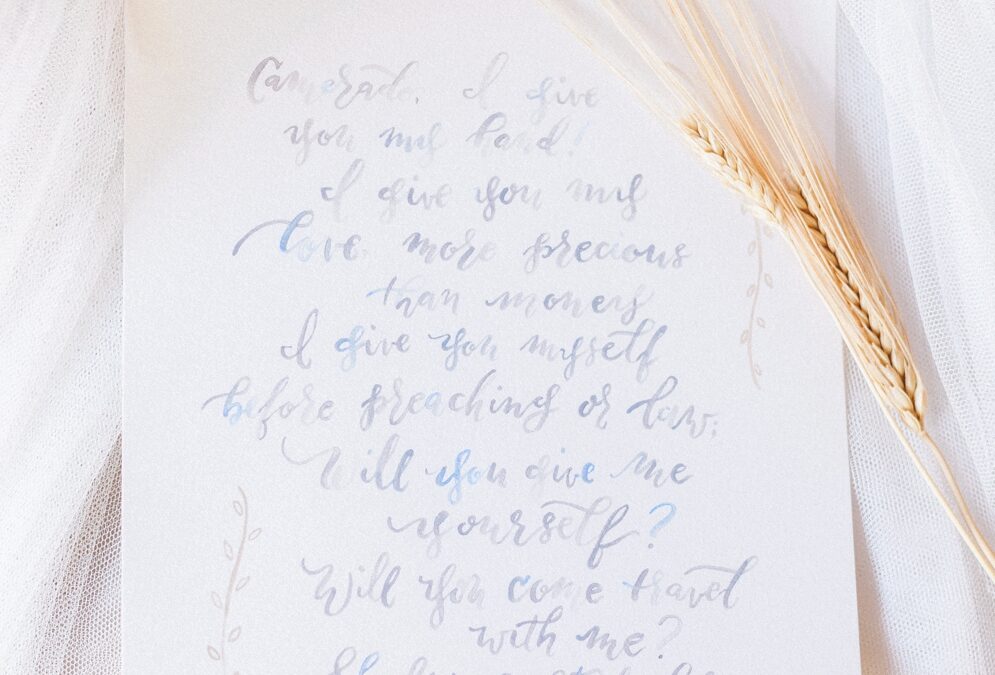 Camerado, I give
you my hand!
I give you my
love more precious
than money
I give you myself
before preaching or law;
Will you give me
yourself?
Will you come travel
with me?